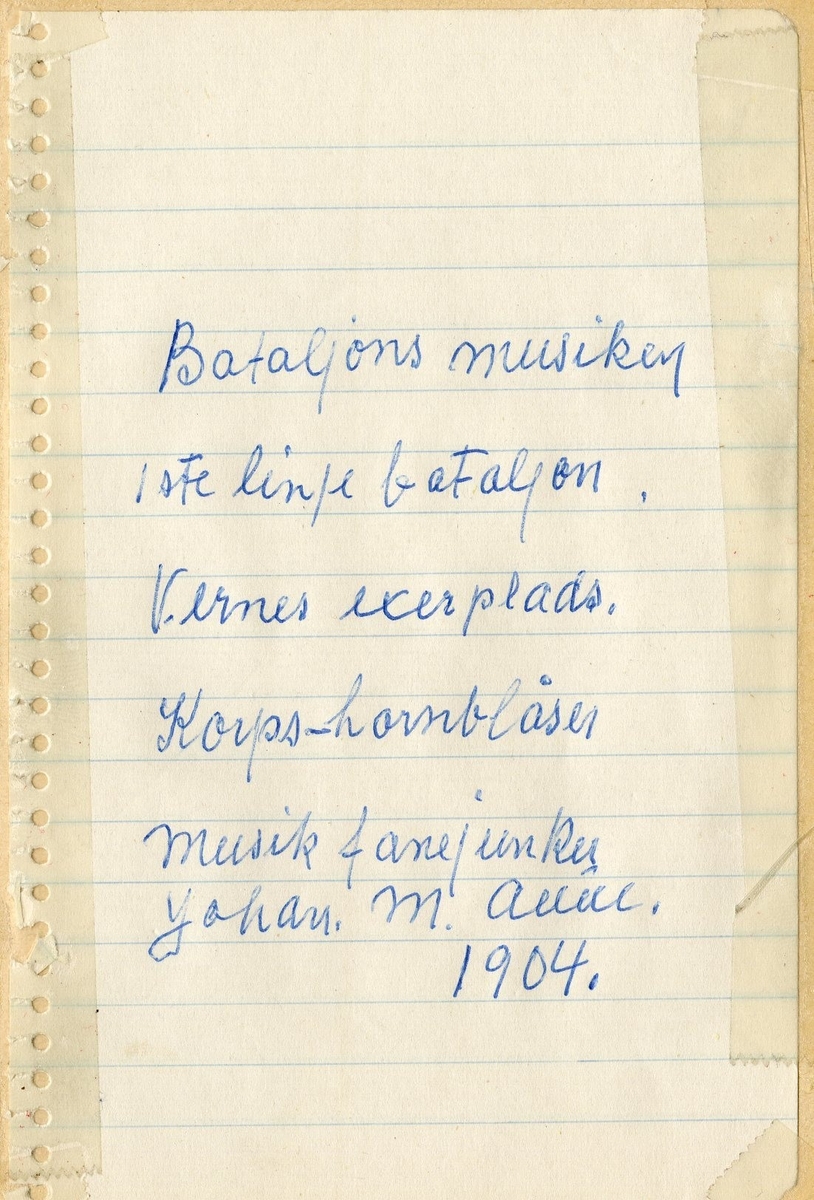 Bataljons musiken
1ste linje bataljon.
Vernes exerplads.
Korps-hornblåser
Musik fanejunker
Johan. M.
1904.